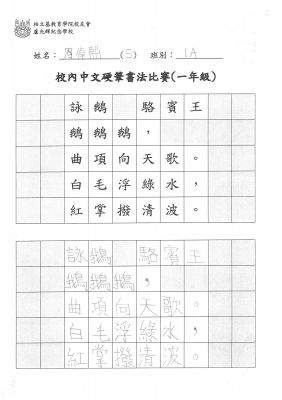 柏立基教育學院校友會
盧光輝紀念學校
姓名： (5) 班別： 1A
校內中文硬筆書法比賽(一年級)
詠鵝 駱賓王
鵝鵝鵝，
曲項向天歌。
白毛浮綠水，
紅掌撥清波。
詠鵝 駱賓王
鵝鵝鵝，
曲項向天歌。
白毛浮綠水，
紅掌撥清波。